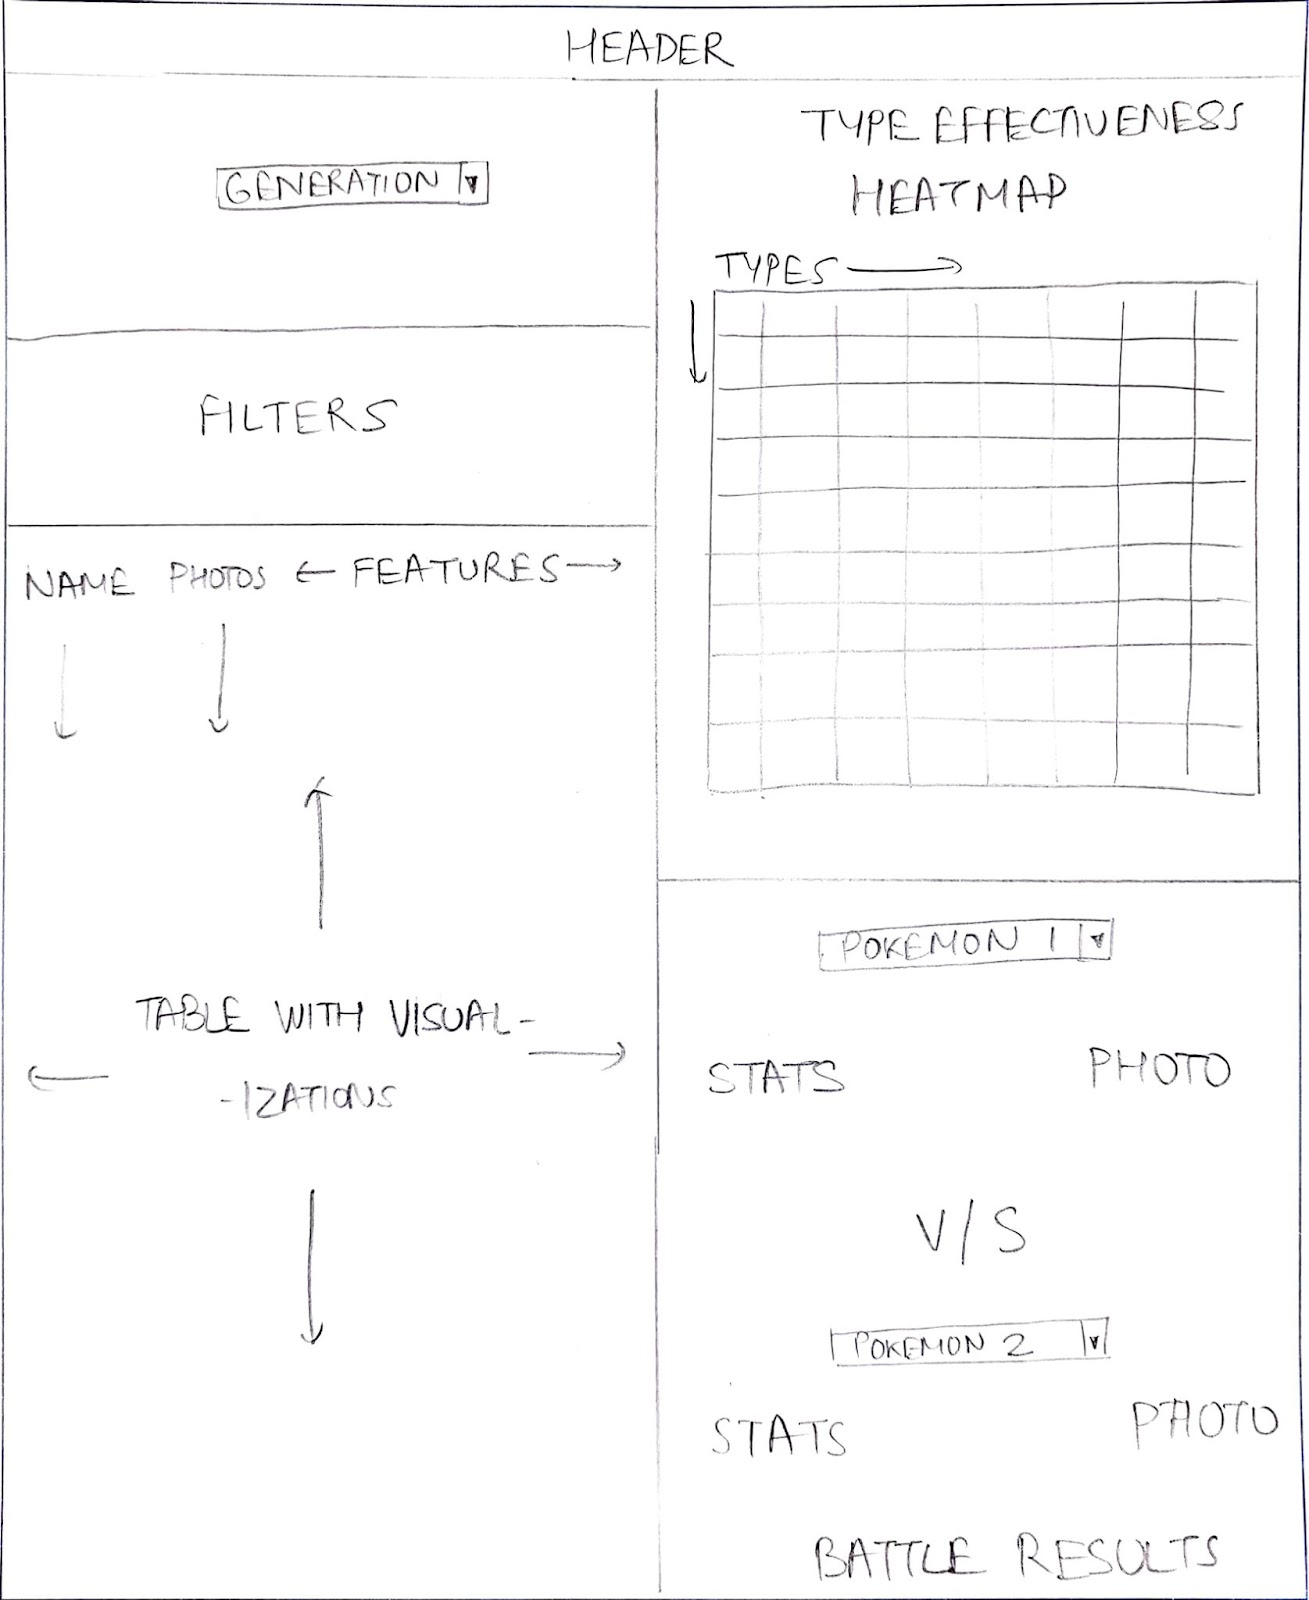 HEADER
GENERATION
FILTERS
NAME PHOTOS ← FEATURES →
TABLE WITH VISUAL-
-IZATIONS
TYPE EFFECTIVENESS
HEATMAP
TYPES
POKEMON 1
STATS PHOTO
V/S
POKEMON 2
STATS PHOTO
BATTLE RESULTS